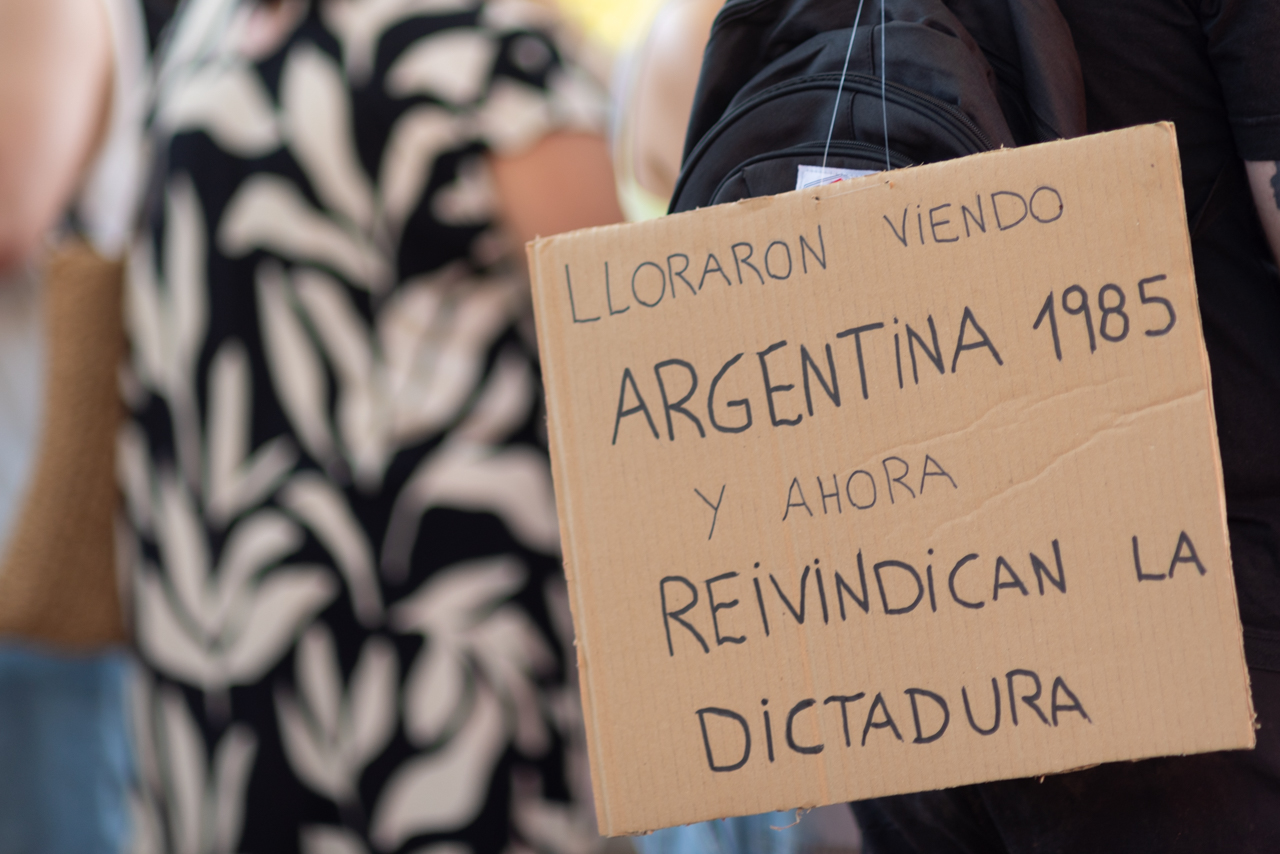 LLORARON VIENDO
ARGENTINA 1985
Y AHORA
REIVINDICAN LA
DICTADURA